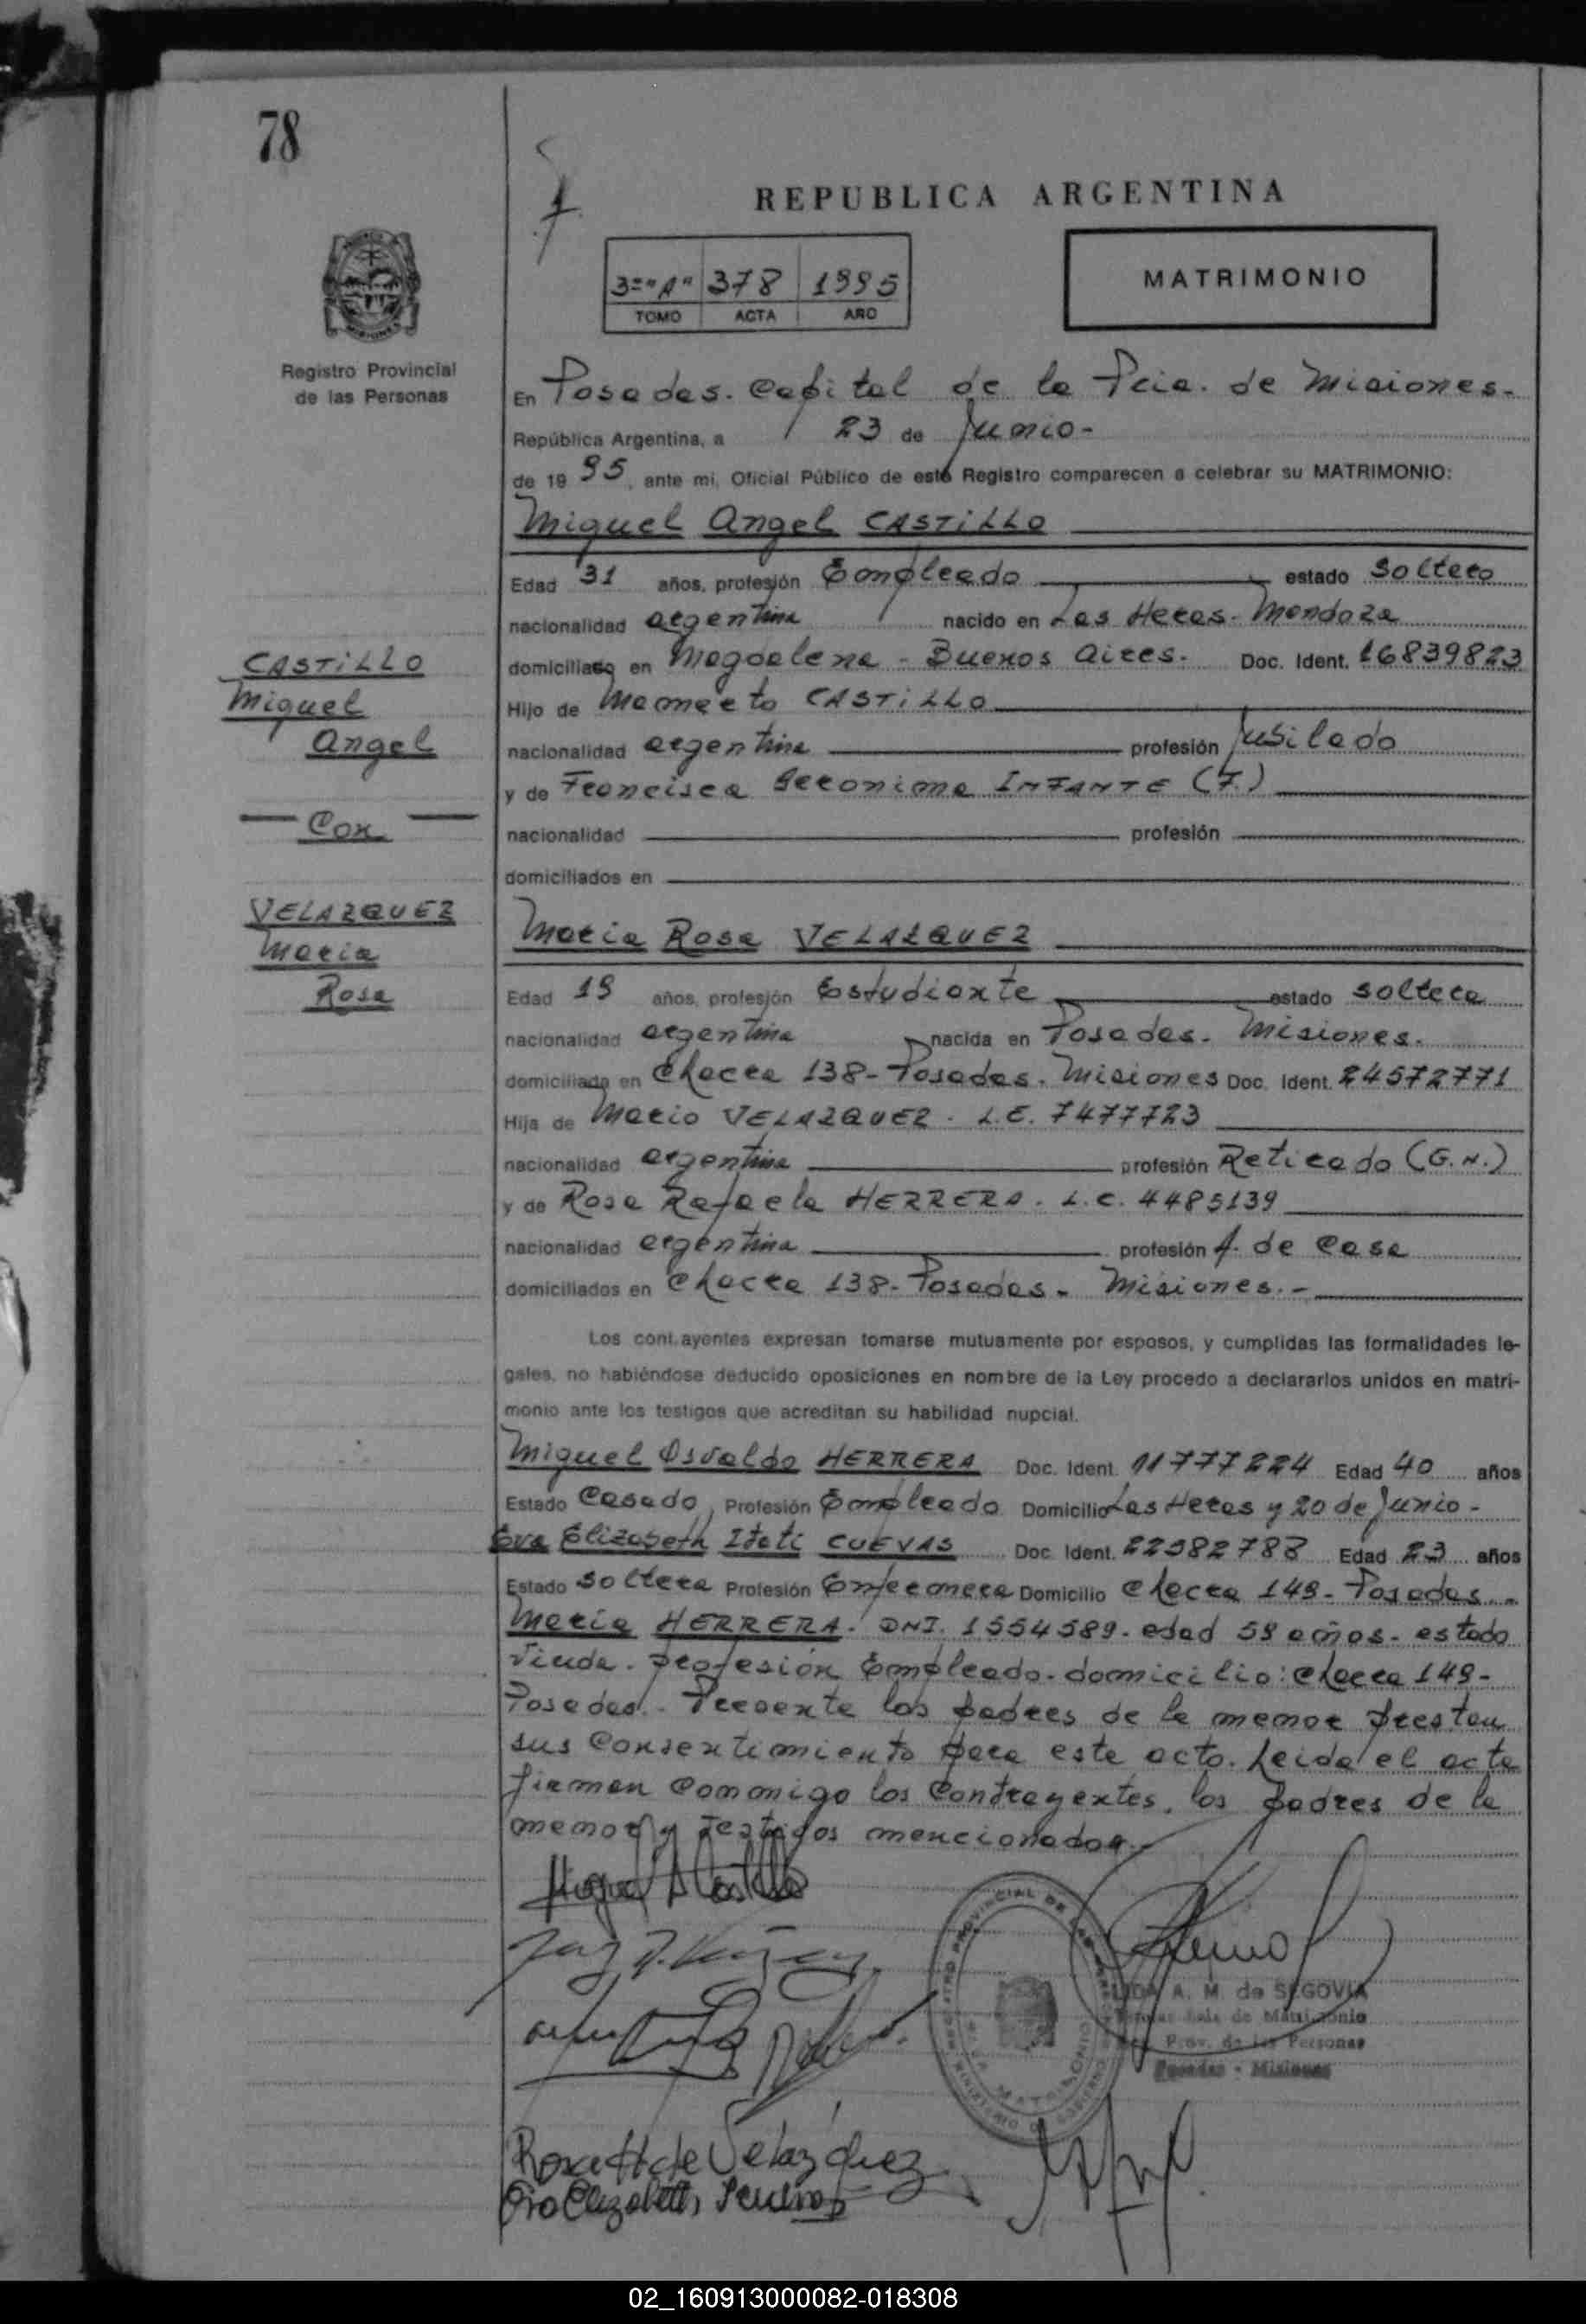 78
REPUBLICA ARGENTINA
3º "A" 378 1995
TOMO ACTA AÑO
MATRIMONIO
Registro Provincial
de las Personas
En Posadas. Capital de la Pcia. de Misiones.-
República Argentina, a 23 de Junio-
de 1995, ante mi, Oficial Público de este Registro comparecen a celebrar su MATRIMONIO:
Miguel Angel CASTILLO
Edad 31 años, profesión Empleado estado soltero
nacionalidad argentina nacido en Las Heras- Mendoza
domiciliado en Magdalena - Buenos Aires. Doc. Ident. 16839823
Hijo de Mamerto CASTILLO
nacionalidad argentina profesión Jubilado
y de Francisca Geronima INFANTE (F.)
nacionalidad profesión
domiciliados en
CASTILLO
Miguel
Angel
Con
VELAZQUEZ
Maria
Rosa
Maria Rosa VELAZQUEZ
Edad 19 años, profesión Estudiante estado soltera
nacionalidad argentina nacida en Posadas. Misiones.
domiciliada en Chacra 138- Posadas. Misiones Doc. Ident. 24572771
Hija de Mario VELAZQUEZ. L.E. 7477723
nacionalidad argentina profesión Retirado (G.N.)
y de Rosa Rafaela HERRERA. L.C. 4485139
nacionalidad argentina profesión A. de Casa
domiciliados en Chacra 138- Posadas. Misiones.-
Los contrayentes expresan tomarse mutuamente por esposos, y cumplidas las formalidades le-
gales, no habiéndose deducido oposiciones en nombre de la Ley procedo a declararlos unidos en matri-
monio ante los testigos que acreditan su habilidad nupcial.
Miguel Osvaldo HERRERA Doc. Ident. 11777224 Edad 40 años
Estado Casado, Profesión Empleado Domicilio Las Heras y 20 de Junio-
Eva Elizabeth Itati CUEVAS Doc. Ident. 22982788 Edad 23 años
Estado soltera Profesión Enfermera Domicilio Chacra 149- Posadas.-
Maria HERRERA. DNI. 1554589- edad 59 años- estado
Viuda. profesión Empleada- domicilio: Chacra 149-
Posadas.- Presente los padres de la menor prestan
sus Consentimiento para este acto. Leida el acta
firman Conmigo los Contrayentes, los padres de la
menor y Testigos mencionados.-
Miguel A Castillo
REGISTRO PROVINCIAL DE LAS PERSONAS
MATRIMONIO
MINISTERIO DE GOBIERNO
A. M. de SEGOVIA
Sala de Matrimonio
Prov. de las Personas
Posadas - Misiones
Rosa H de Velazquez
02_160913000082-018308